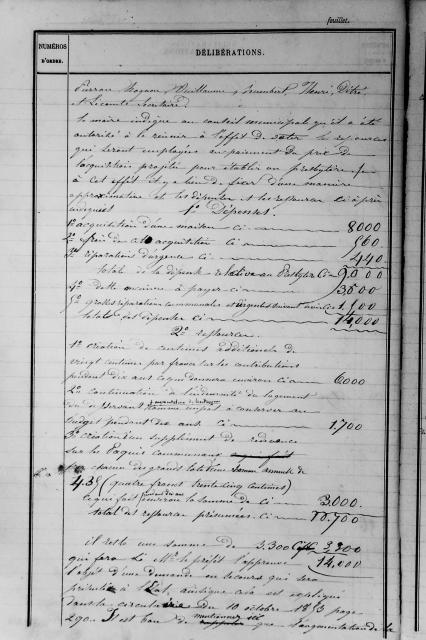 feuillet.
NUMÉROS
D'ORDRE.
DÉLIBÉRATIONS.
Guillaume, Humbert, Henri,
et Lecomte Secrétaire.
Le maire indique au conseil municipal qu'il a été
autorisé à le réunir à l'effet de voter les ressources
qui seront employées au paiement du prix de
l'acquisition projetée pour établir un presbytère
à cet effet il y a lieu de fixer d'une manière
approximative et les dépenses et les ressources ci après
indiquées 1° Dépenses.
1° acquisition d'une maison ci 8000
2° frais de acquisition ci 560
3° réparations d'urgence ci 440
total de la dépense relative au Presbytère ci 9000
4° Dette à payer ci 3500
5° grosses réparations communales et urgentes suivant ci 1,500
total des dépenses ci 14,000
2° ressources.
1° création de centimes additionnels de
vingt centimes par franc sur les contributions
pendant dix ans ce qui donnera environ ci 6000
2° continuation de l'indemnité de logement
au
budget pendant dix ans ci 1,700
3° création d'un supplément de redevance
sur les Paquis communaux
par chacun des grands lots d'une somme annuelle de
4.35 (quatre francs trente cinq centimes)
ce qui fait pendant dix ans environ la somme de ci 3.000.
total des ressources présumées ci 10.700
il reste une somme de 3.300 3,300
que fera Le Mr. le préfet l'approuve 14,000
l'objet d'une demande en secours qui sera
présentée à l'Etat, ainsi que cela est expliqué
dans la circulaire du 10 octobre 1853 page
290. Il est bon de mentionner que l'augmentation de la